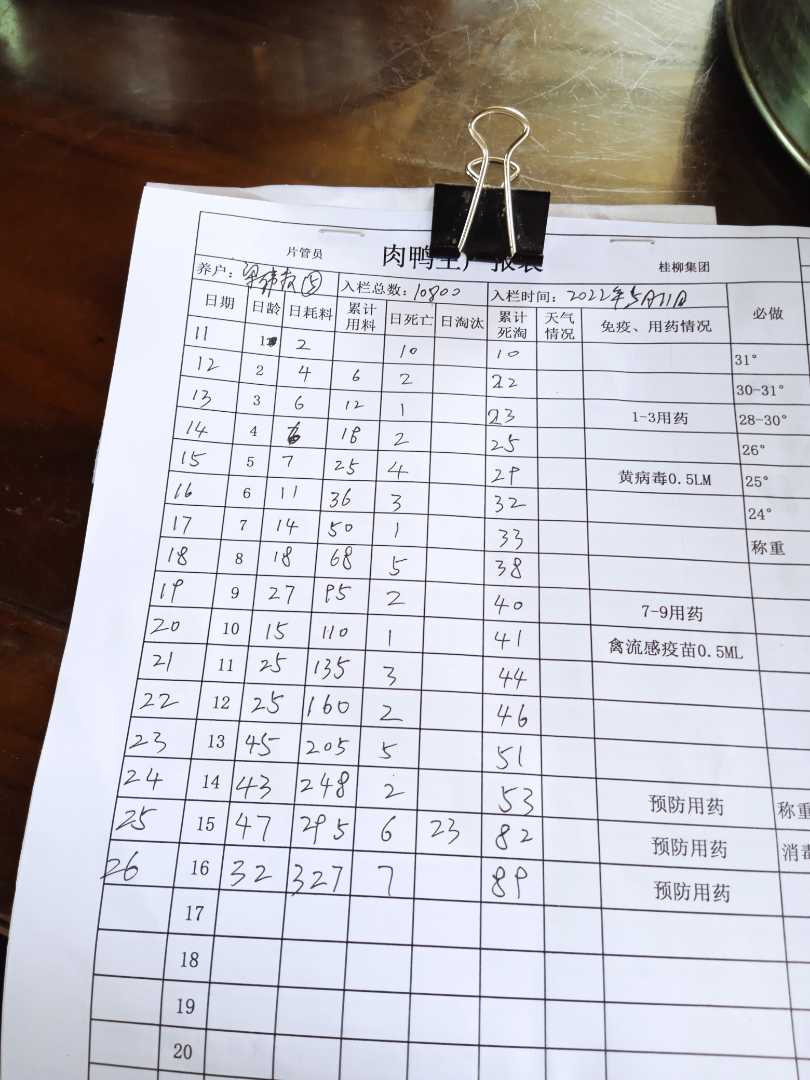 片管员 肉鸭生产报表 桂柳集团
养户: ⑤ 入栏总数:10800 入栏时间:2022年5月11日
日期 日龄 日耗料 累计用料 日死亡 日淘汰 累计死淘 天气情况 免疫、用药情况 必做
11 1 2 10 10 31°
12 2 4 6 2 22 30-31°
13 3 6 12 1 23 1-3用药 28-30°
14 4 6 18 2 25 26°
15 5 7 25 4 29 黄病毒0.5LM 25°
16 6 11 36 3 32 24°
17 7 14 50 1 33 称重
18 8 18 68 5 38
19 9 27 95 2 40 7-9用药
20 10 15 110 1 41 禽流感疫苗0.5ML
21 11 25 135 3 44
22 12 25 160 2 46
23 13 45 205 5 51
24 14 43 248 2 53 预防用药 称重
25 15 47 295 6 23 82 预防用药 消毒
26 16 32 327 7 89 预防用药
17
18
19
20